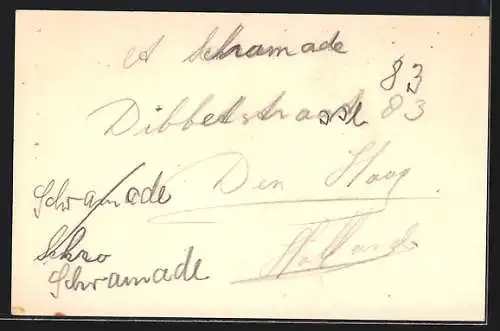 Schramade
83
Dibbetstraat 83
Den Haag
Schramade
Holland
Schro
Schramade